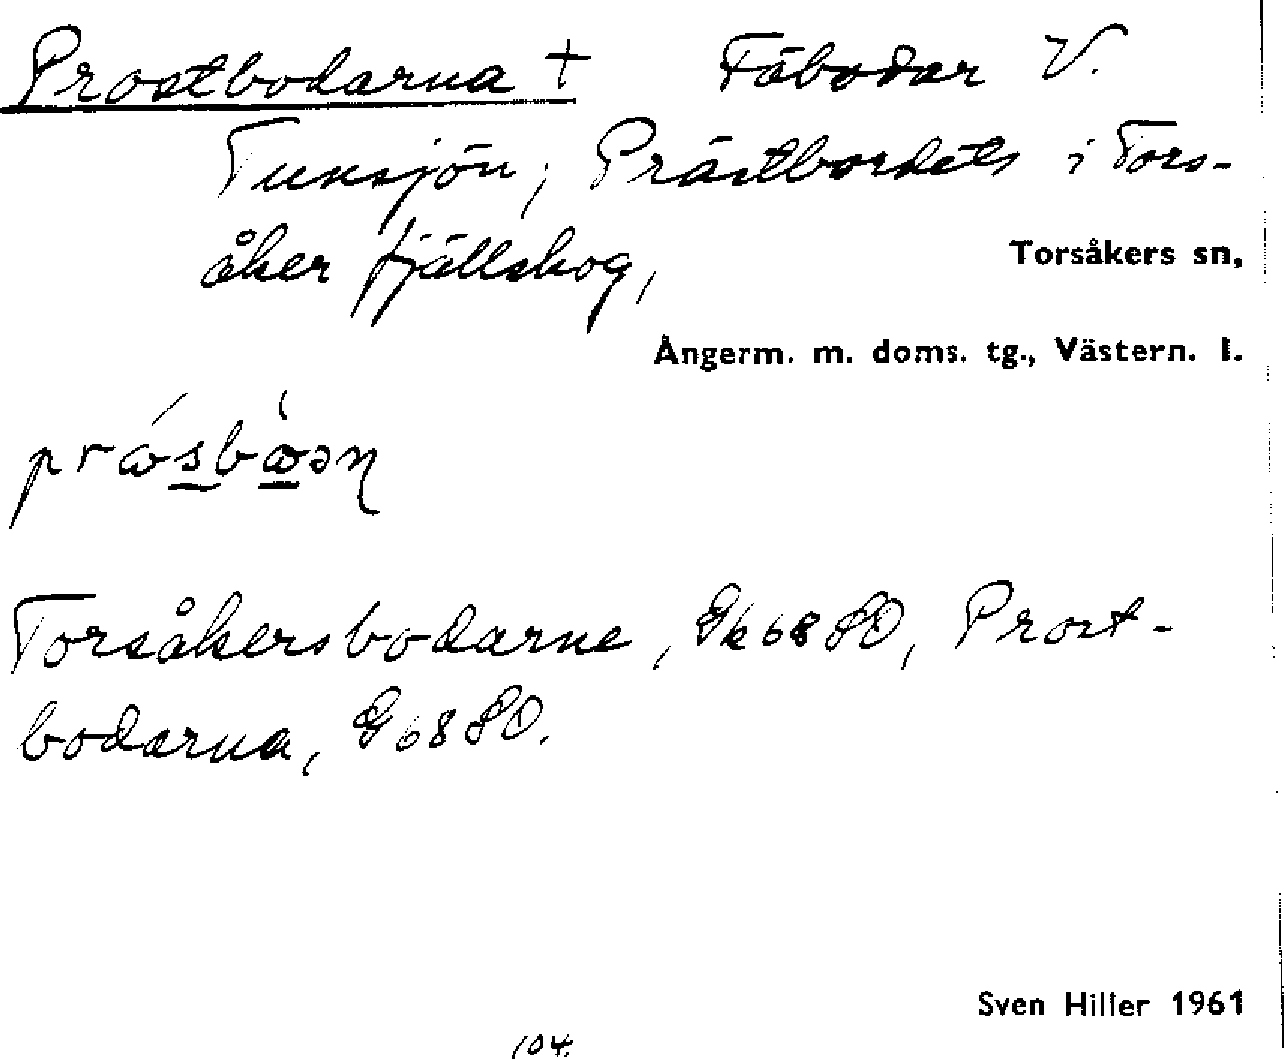 Prostbodarna + Fäbodar V.
Tunsjön; Prästbordets i Tors-
åker fjällskog,
Torsåkers sn,
Ångerm. m. doms. tg., Västern. l.
Torsåkersbodarne, Gk 68 SO, Prost-
bodarna, G 68 SO.
Sven Hiller 1961
104.